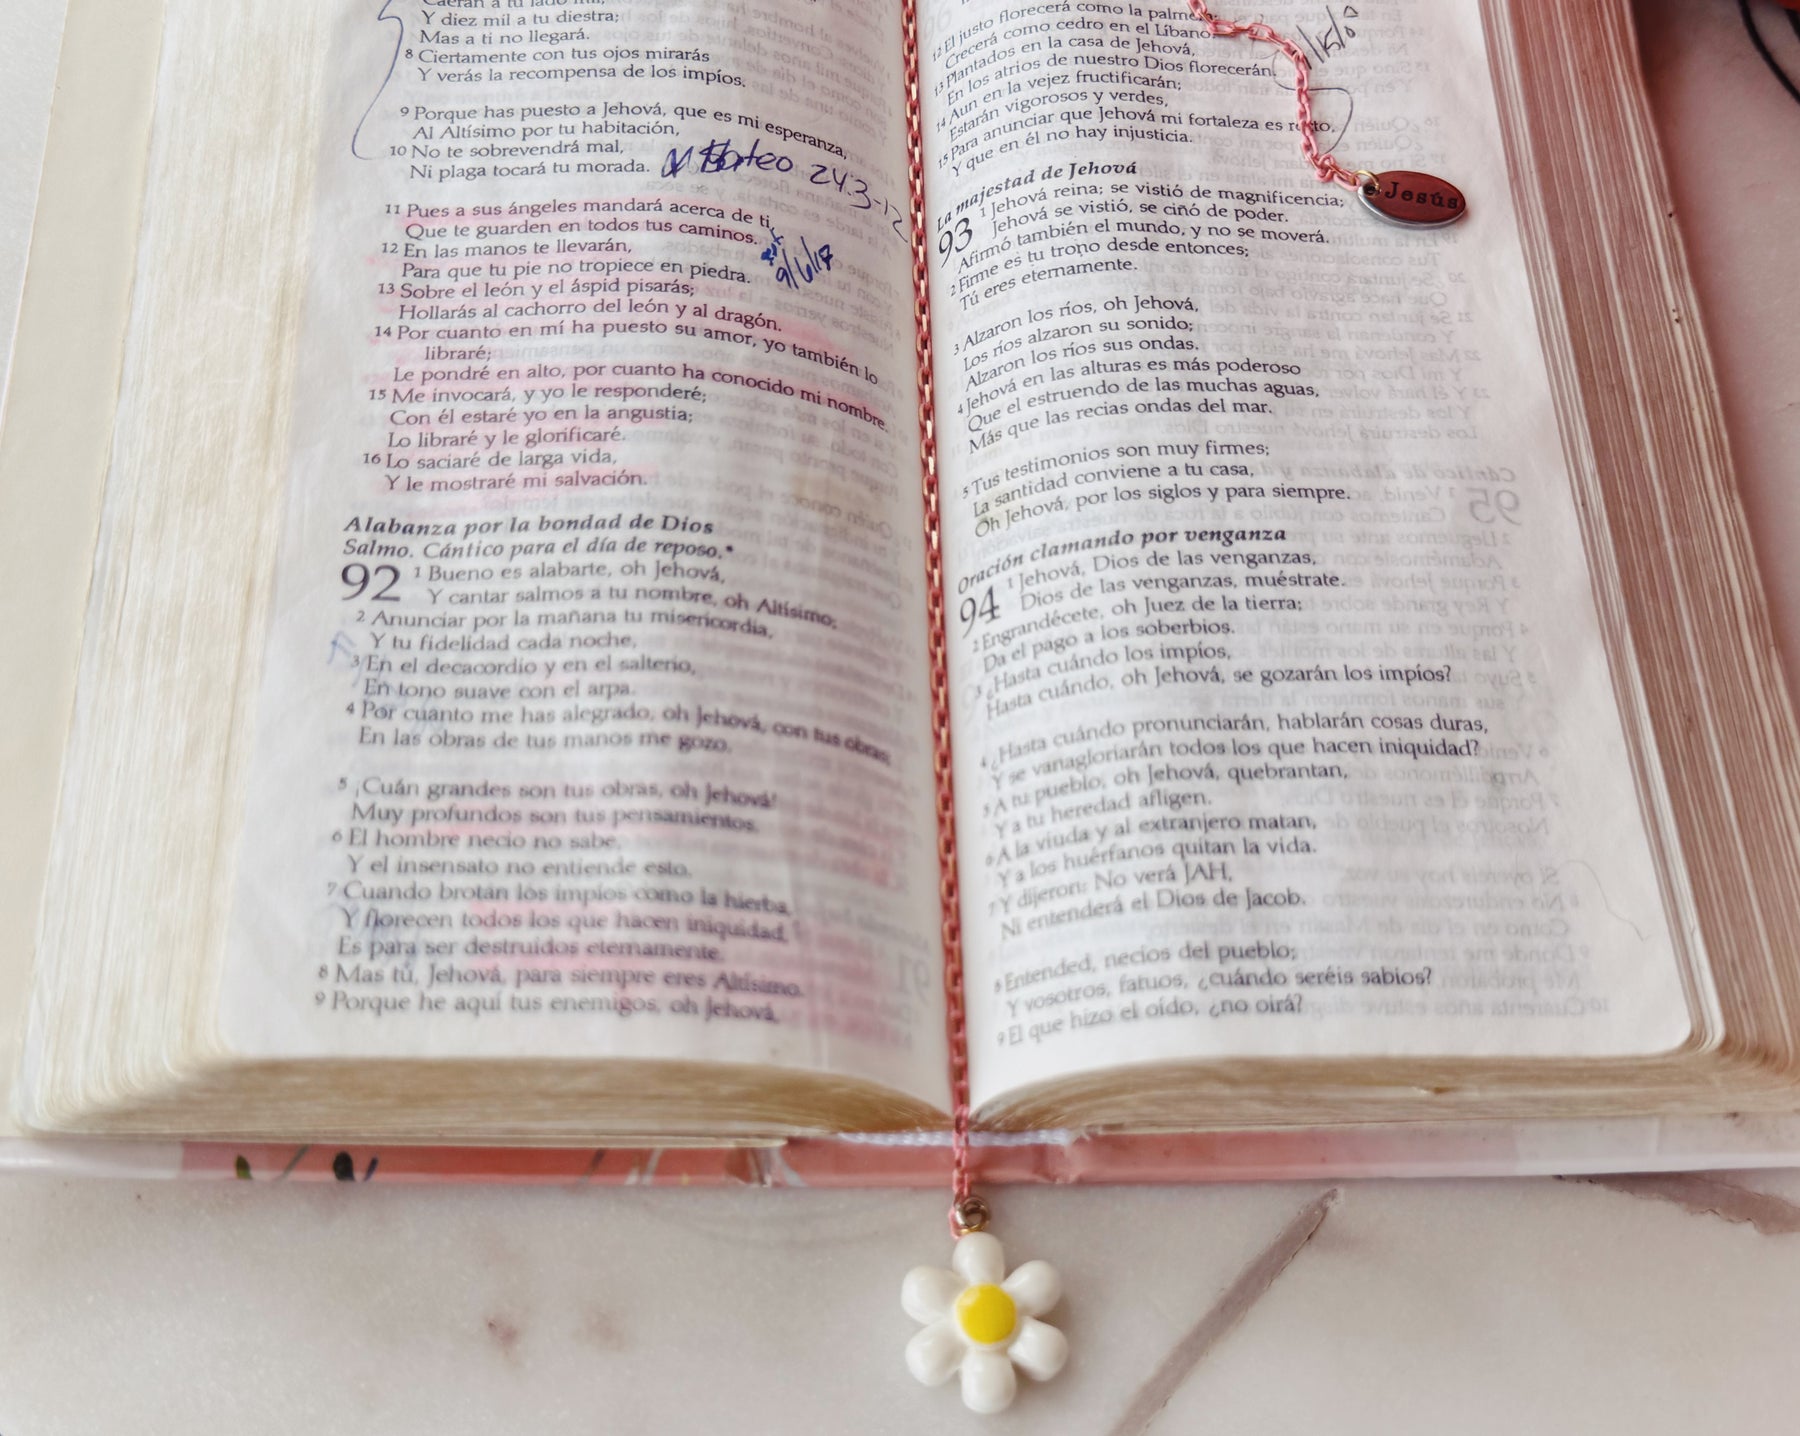 Caerán a tu lado mil,
Y diez mil a tu diestra;
Mas a ti no llegará.
8 Ciertamente con tus ojos mirarás
Y verás la recompensa de los impíos.
9 Porque has puesto a Jehová, que es mi esperanza,
Al Altísimo por tu habitación,
10 No te sobrevendrá mal,
Ni plaga tocará tu morada.
Mateo 24:3-12
11 Pues a sus ángeles mandará acerca de ti,
Que te guarden en todos tus caminos.
9/6/17
12 En las manos te llevarán,
Para que tu pie no tropiece en piedra.
13 Sobre el león y el áspid pisarás;
Hollarás al cachorro del león y al dragón.
14 Por cuanto en mí ha puesto su amor, yo también lo
libraré;
Le pondré en alto, por cuanto ha conocido mi nombre.
15 Me invocará, y yo le responderé;
Con él estaré yo en la angustia;
Lo libraré y le glorificaré.
16 Lo saciaré de larga vida,
Y le mostraré mi salvación.
Alabanza por la bondad de Dios
Salmo. Cántico para el día de reposo.*
92 1 Bueno es alabarte, oh Jehová,
Y cantar salmos a tu nombre, oh Altísimo;
2 Anunciar por la mañana tu misericordia,
Y tu fidelidad cada noche,
3 En el decacordio y en el salterio,
En tono suave con el arpa.
4 Por cuanto me has alegrado, oh Jehová, con tus obras;
En las obras de tus manos me gozo.
5 ¡Cuán grandes son tus obras, oh Jehová!
Muy profundos son tus pensamientos.
6 El hombre necio no sabe,
Y el insensato no entiende esto.
7 Cuando brotan los impíos como la hierba,
Y florecen todos los que hacen iniquidad,
Es para ser destruidos eternamente.
8 Mas tú, Jehová, para siempre eres Altísimo.
9 Porque he aquí tus enemigos, oh Jehová,
12 El justo florecerá como la palmera;
Crecerá como cedro en el Líbano.
13 Plantados en la casa de Jehová,
En los atrios de nuestro Dios florecerán.
14 Aun en la vejez fructificarán;
Estarán vigorosos y verdes,
15 Para anunciar que Jehová mi fortaleza es recto,
Y que en él no hay injusticia.
Jesús
La majestad de Jehová
93 1 Jehová reina; se vistió de magnificencia;
Jehová se vistió, se ciñó de poder.
Afirmó también el mundo, y no se moverá.
2 Firme es tu trono desde entonces;
Tú eres eternamente.
3 Alzaron los ríos, oh Jehová,
Los ríos alzaron su sonido;
Alzaron los ríos sus ondas.
4 Jehová en las alturas es más poderoso
Que el estruendo de las muchas aguas,
Más que las recias ondas del mar.
5 Tus testimonios son muy firmes;
La santidad conviene a tu casa,
Oh Jehová, por los siglos y para siempre.
Oración clamando por venganza
94 1 Jehová, Dios de las venganzas,
Dios de las venganzas, muéstrate.
2 Engrandécete, oh Juez de la tierra;
Da el pago a los soberbios.
3 ¿Hasta cuándo los impíos,
Hasta cuándo, oh Jehová, se gozarán los impíos?
4 ¿Hasta cuándo pronunciarán, hablarán cosas duras,
Y se vanagloriarán todos los que hacen iniquidad?
5 A tu pueblo, oh Jehová, quebrantan,
Y a tu heredad afligen.
6 A la viuda y al extranjero matan,
Y a los huérfanos quitan la vida.
7 Y dijeron: No verá JAH,
Ni entenderá el Dios de Jacob.
8 Entended, necios del pueblo;
Y vosotros, fatuos, ¿cuándo seréis sabios?
9 El que hizo el oído, ¿no oirá?